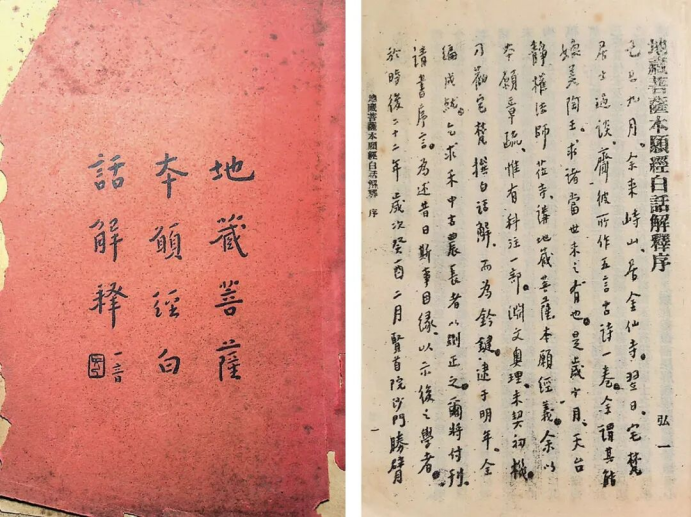 地藏菩薩
本願經白
話解釋
一音
地藏菩薩本願經白話解釋序
弘一
己巳九月。余來峙山。居金仙寺。翌日。宅梵
居士過談。齋彼所作五言古詩一卷。余謂其能
媲美陶王。求諸當世未之有也。是歲十月。天台
靜權法師蒞寺。講地藏菩薩本願經義。余以
本願章疏。惟有科注一部。淵文奧理。未契初機。
乃勸宅梵撰白話解。而為鈴鍵。逮于明年。全
編成就。乞求禾中古農長者以刪正之。爾將付刊。
請書序言。為述昔日斯事因緣。以示後之學者。
於時後二十二年歲次癸酉二月賢首院沙門勝臂
地藏菩薩本願經白話解釋 序
一